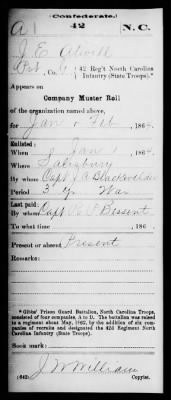 (Confederate.)
A 42 N.C.
J E Atwell
Pvt, Co. 42 Reg't North Carolina
Infantry (State Troops).*
Appears on
Company Muster Roll
of the organization named above,
for Jan & Feb , 1864.
Enlisted:
When Jan 1 , 186
Where Salisbury
By whom Capt J A Blackwelder
Period 3 yrs War
Last paid:
By whom Capt R P Bessent
To what time , 186
Present or absent Present
Remarks:
* Gibbs' Prison Guard Battalion, North Carolina Troops,
consisted of four companies, A to D. The battalion was raised
to a regiment about May, 1862, by the addition of six com-
panies of recruits and designated the 42d Regiment North
Carolina Infantry (State Troops).
Book mark:
J W William
(642) Copyist.